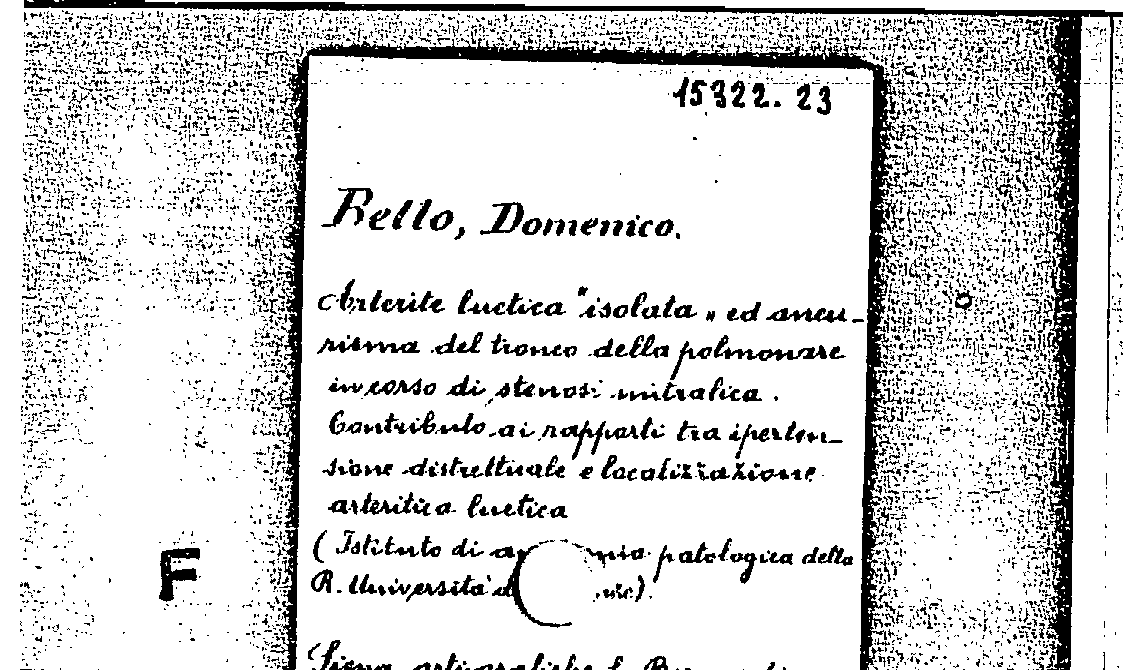 15322. 23
Bello, Domenico.
Arterite luetica "isolata" ed aneu-
risma del tronco della polmonare
in corso di stenosi mitralica.
Contributo ai rapporti tra iperten-
sione distrettuale e localizzazione
arteritica luetica
(Istituto di patologica della
R. Università
F
Siena, arti grafiche S.